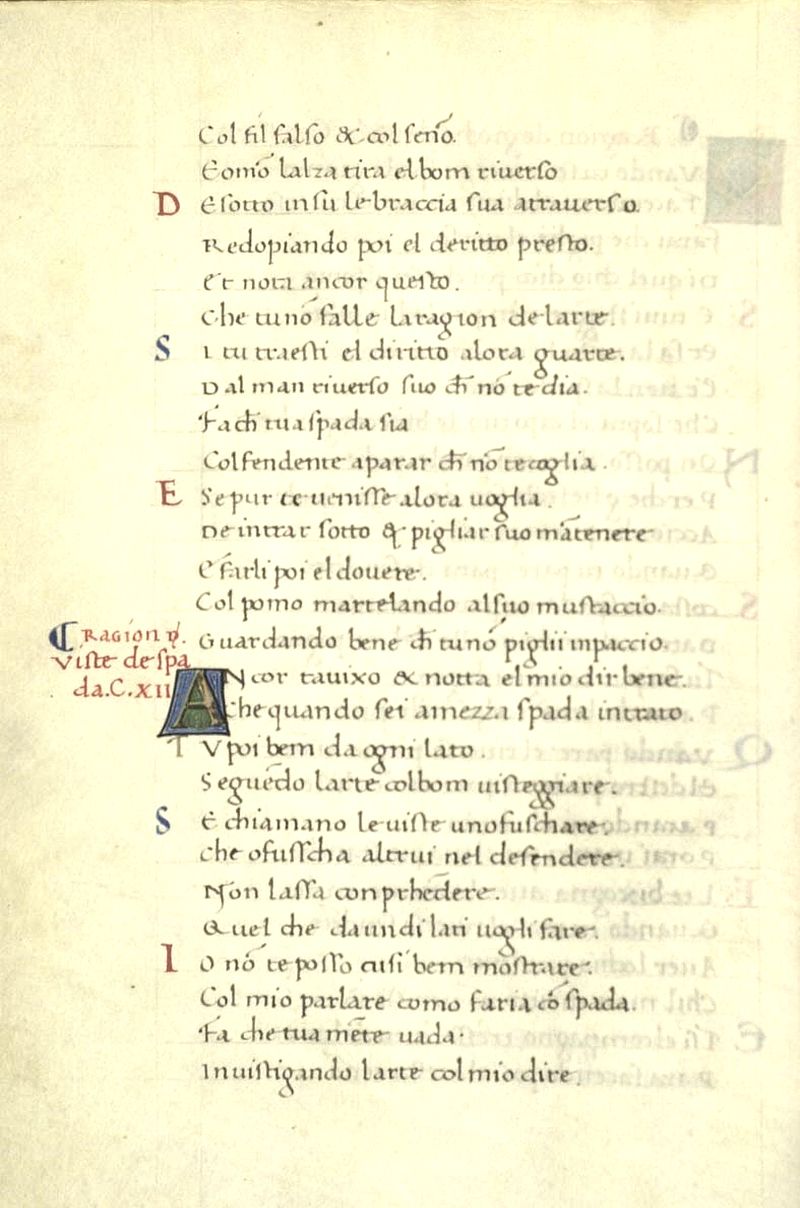 Col fil falso & col seno.
E com̄o lalza tira el bom riuerso
D E sotto in su le braccia sua atrauerso.
Redopiando poi el deritto presto.
Et nota ancor questo.
Che tu nō falle la ragion de larte.
S I tu traesti el diritto alora guarte.
Dal man riuerso suo ch̄ nō te dia.
Fa ch̄ tua spada sia
Col fendente aparar ch̄ nō te coglia.
E Se pur te uenisse alora uoglia.
De intrar sotto & pigliar suo mātenere
E farli poi el douere.
Col pomo martelando al suo mustaccio.
Guardando bene ch̄ tu nō piglii inpaccio.
Ragion d.
Viste de spa
da. C. xii
ANcor tauixo & notta el mio dir bene.
Che quando sei a mezza spada intrato.
TV poi bem da ogni lato.
Seguēdo larte col bom uisteggiare.
S E chiamano le uiste uno fuschare.
Che ofusscha altrui nel defendere.
Non lassa conprhēdere.
Quel che da un di lati uogli fare.
I O nō te posso cusi bem mostrare.
Col mio parlare como faria cō spada.
Fa che tua mēte uada.
Inuistigando larte col mio dire.